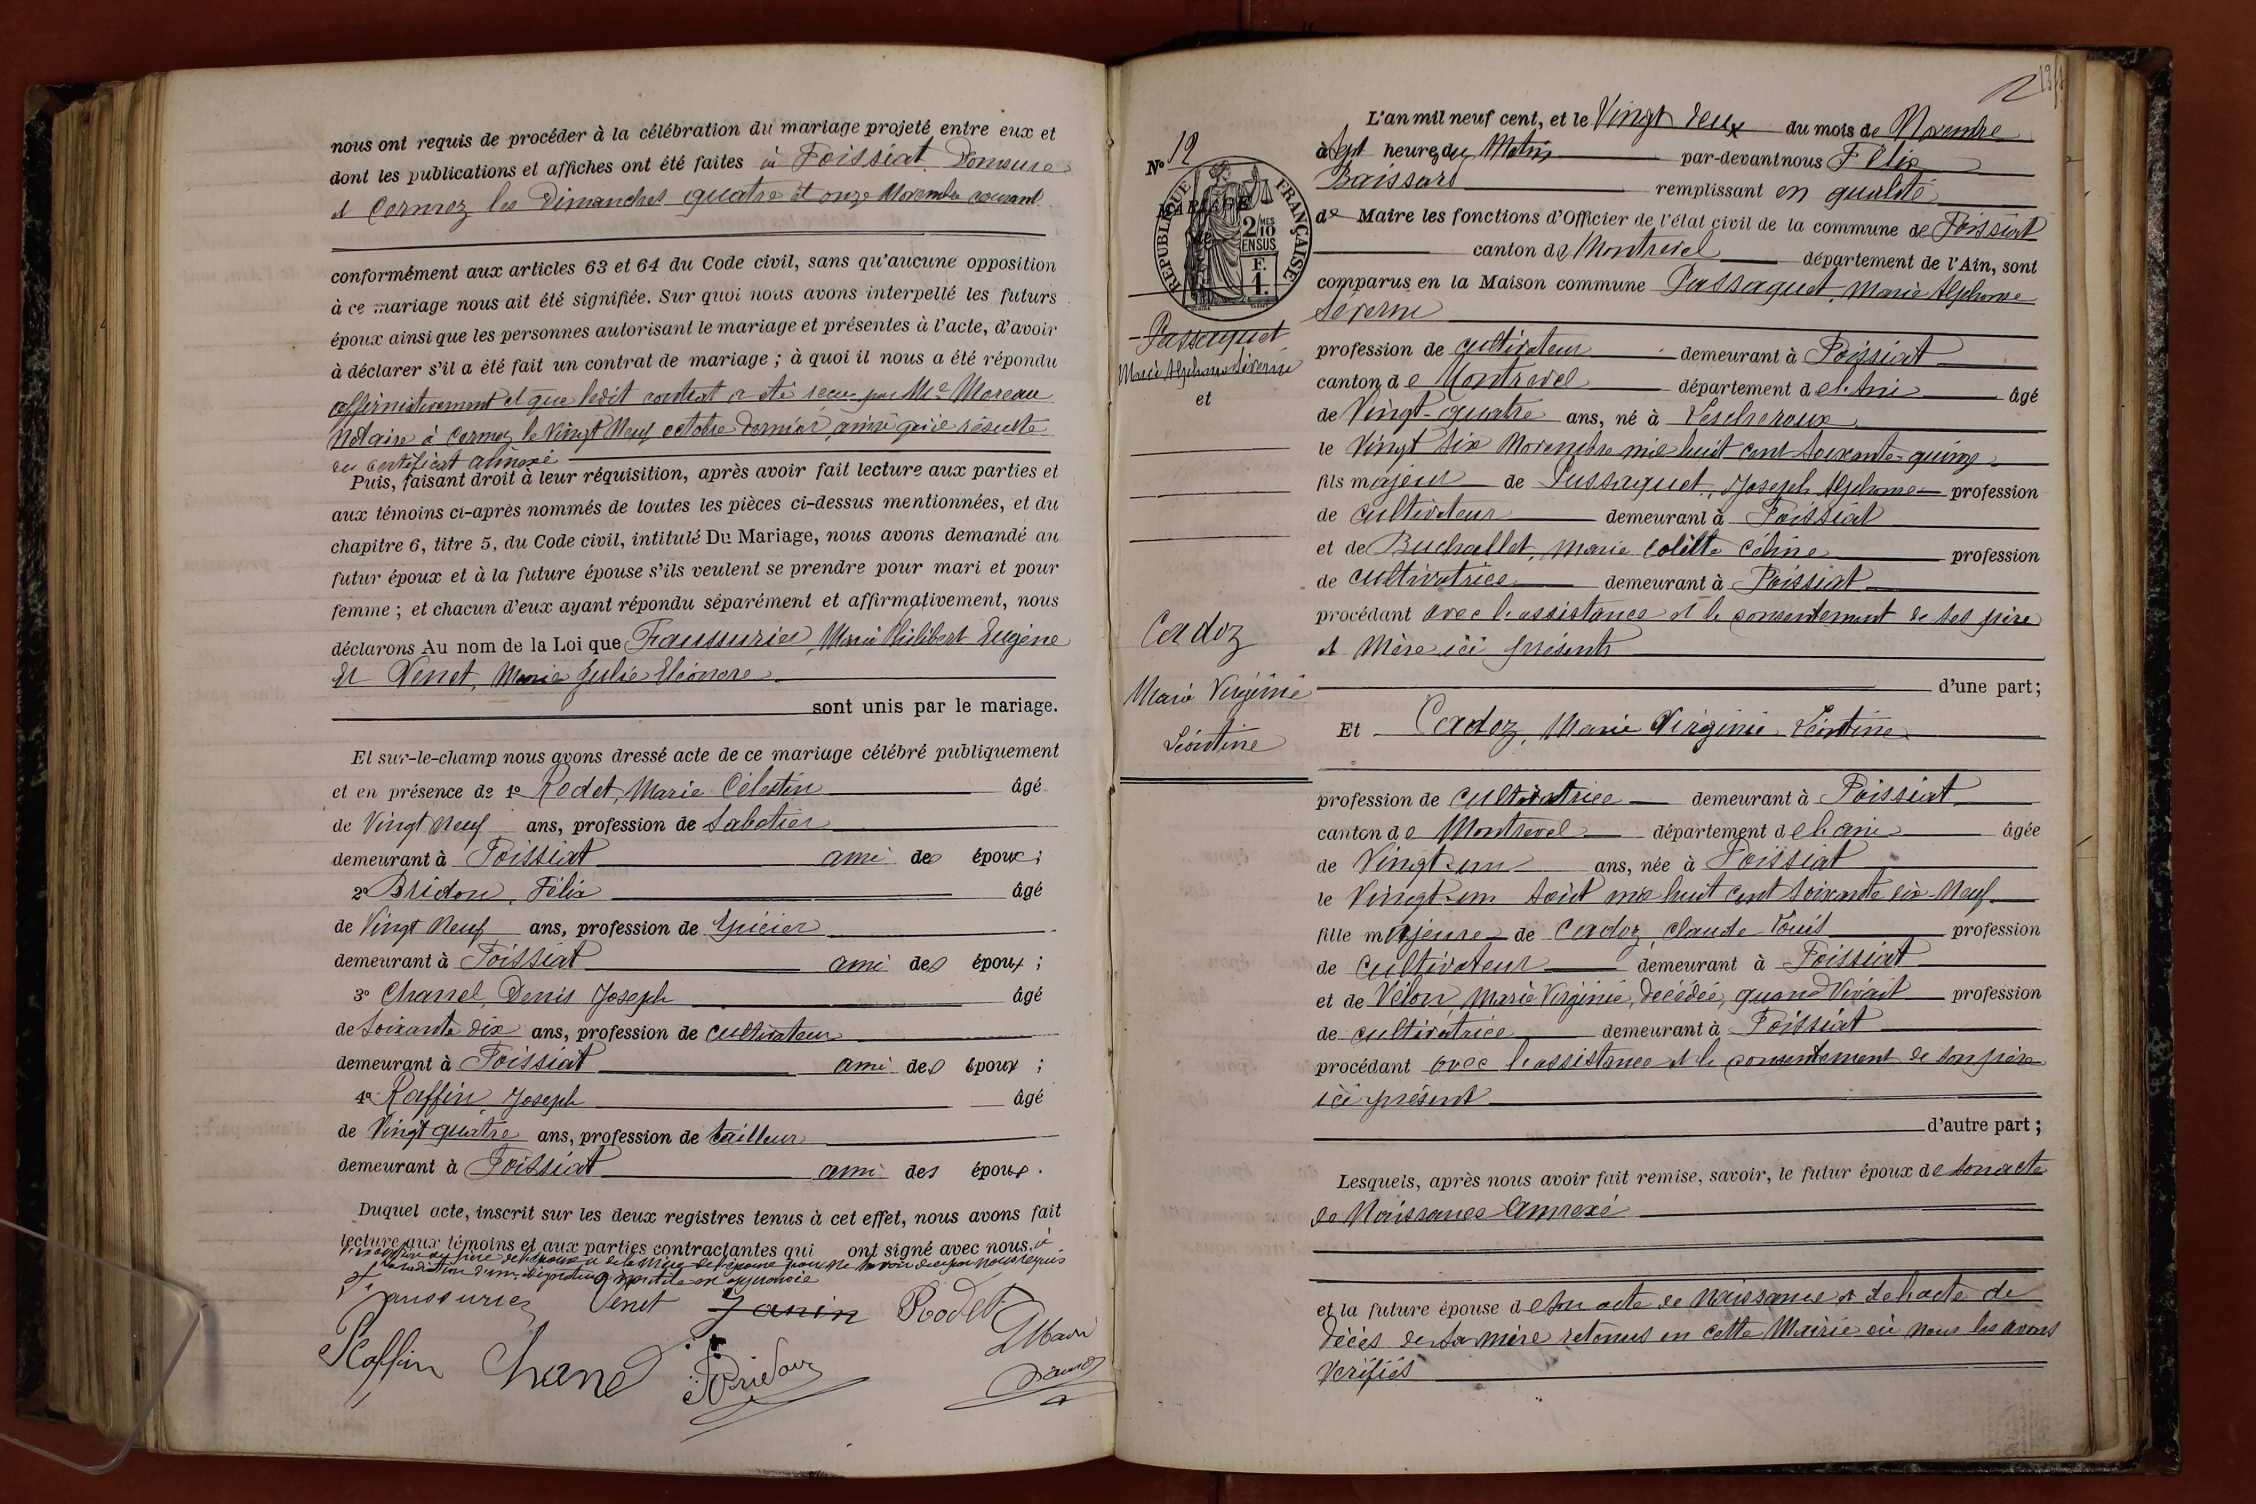 nous ont requis de procéder à la célébration du mariage projeté entre eux et
dont les publications et affiches ont été faites à Foissiat Domsure
et Cormoz les Dimanches quatre et onze Novembre courant
conformément aux articles 63 et 64 du Code civil, sans qu'aucune opposition
à ce mariage nous ait été signifiée. Sur quoi nous avons interpellé les futurs
époux ainsi que les personnes autorisant le mariage et présentes à l'acte, d'avoir
à déclarer s'il a été fait un contrat de mariage ; à quoi il nous a été répondu
affirmativement et que ledit contrat a été recu par Me Moreau
Notaire à Cormoz le Vingt Neuf octobre dernier, ainsi qu'il résulte
du certificat annexé
Puis, faisant droit à leur réquisition, après avoir fait lecture aux parties et
aux témoins ci-après nommés de toutes les pièces ci-dessus mentionnées, et du
chapitre 6, titre 5, du Code civil, intitulé Du Mariage, nous avons demandé au
futur époux et à la future épouse s'ils veulent se prendre pour mari et pour
femme ; et chacun d'eux ayant répondu séparément et affirmativement, nous
déclarons Au nom de la Loi que Faussuriez, Marie Philibert Eugène
Et Venet, Marie Julie Eléonore
sont unis par le mariage.
Et sur-le-champ nous avons dressé acte de ce mariage célébré publiquement
et en présence de 1º Rodet, Marie Célestin âgé
de Vingt Neuf ans, profession de Sabotier
demeurant à Foissiat ami des époux ;
2º Bridon, Félix âgé
de Vingt Neuf ans, profession de Epicier
demeurant à Foissiat ami des époux ;
3º Chanel, Denis Joseph âgé
de Soixante dix ans, profession de cultivateur
demeurant à Foissiat ami des époux ;
4º Raffin, Joseph âgé
de Vingt quatre ans, profession de tailleur
demeurant à Foissiat ami des époux.
Duquel acte, inscrit sur les deux registres tenus à cet effet, nous avons fait
lecture aux témoins et aux parties contractantes qui ont signé avec nous. à
l'exception du père de l'époux et de la Mère de l'épouse pour ne savoir de ce par nous requis
radiation d'une signature inutile en approuvé
Faussuriez Venet Janin Rodet
Raffin Chanel Bridon
Nº 12
MARIAGE
RÉPUBLIQUE FRANÇAISE
2/10 MES
EN SUS
F.
1.
Passaquet
Marie Alphonse Séverin
et
Cadoz
Marie Virginie
Léontine
L'an mil neuf cent, et le Vingt deux du mois de Novembre
à sept heures du Matin par-devant nous Félix
Baissard remplissant en qualité
de Maire les fonctions d'Officier de l'état civil de la commune de Foissiat
canton de Montrevel département de l'Ain, sont
comparus en la Maison commune Passaquet, Marie Alphonse
Séverin
profession de cultivateur demeurant à Foissiat
canton de Montrevel département de l'Ain âgé
de Vingt-quatre ans, né à Lescheroux
le Vingt Six Novembre mil huit cent Soixante-quinze
fils majeur de Passaquet, Joseph Alphonse profession
de cultivateur demeurant à Foissiat
et de Buchallet, Marie Colette Céline profession
de cultivatrice demeurant à Foissiat
procédant avec l'assistance et le consentement de ses père
et Mère ici présents
d'une part;
Et Cadoz, Marie Virginie Léontine
profession de cultivatrice demeurant à Foissiat
canton de Montrevel département de l'ain âgée
de Vingt-un ans, née à Foissiat
le Vingt-un Août mil huit cent Soixante dix-Neuf
fille majeure de Cadoz, Claude Louis profession
de cultivateur demeurant à Foissiat
et de Vélon, Marie Virginie, décédée, quand Vivait profession
de cultivatrice demeurant à Foissiat
procédant avec l'assistance et le consentement de son père
ici présent
d'autre part ;
Lesquels, après nous avoir fait remise, savoir, le futur époux de son acte
de Naissance Annexé
et la future épouse de son acte de Naissance et de l'acte de
décès de sa mère retenus en cette Mairie où Nous les avons
Vérifiés